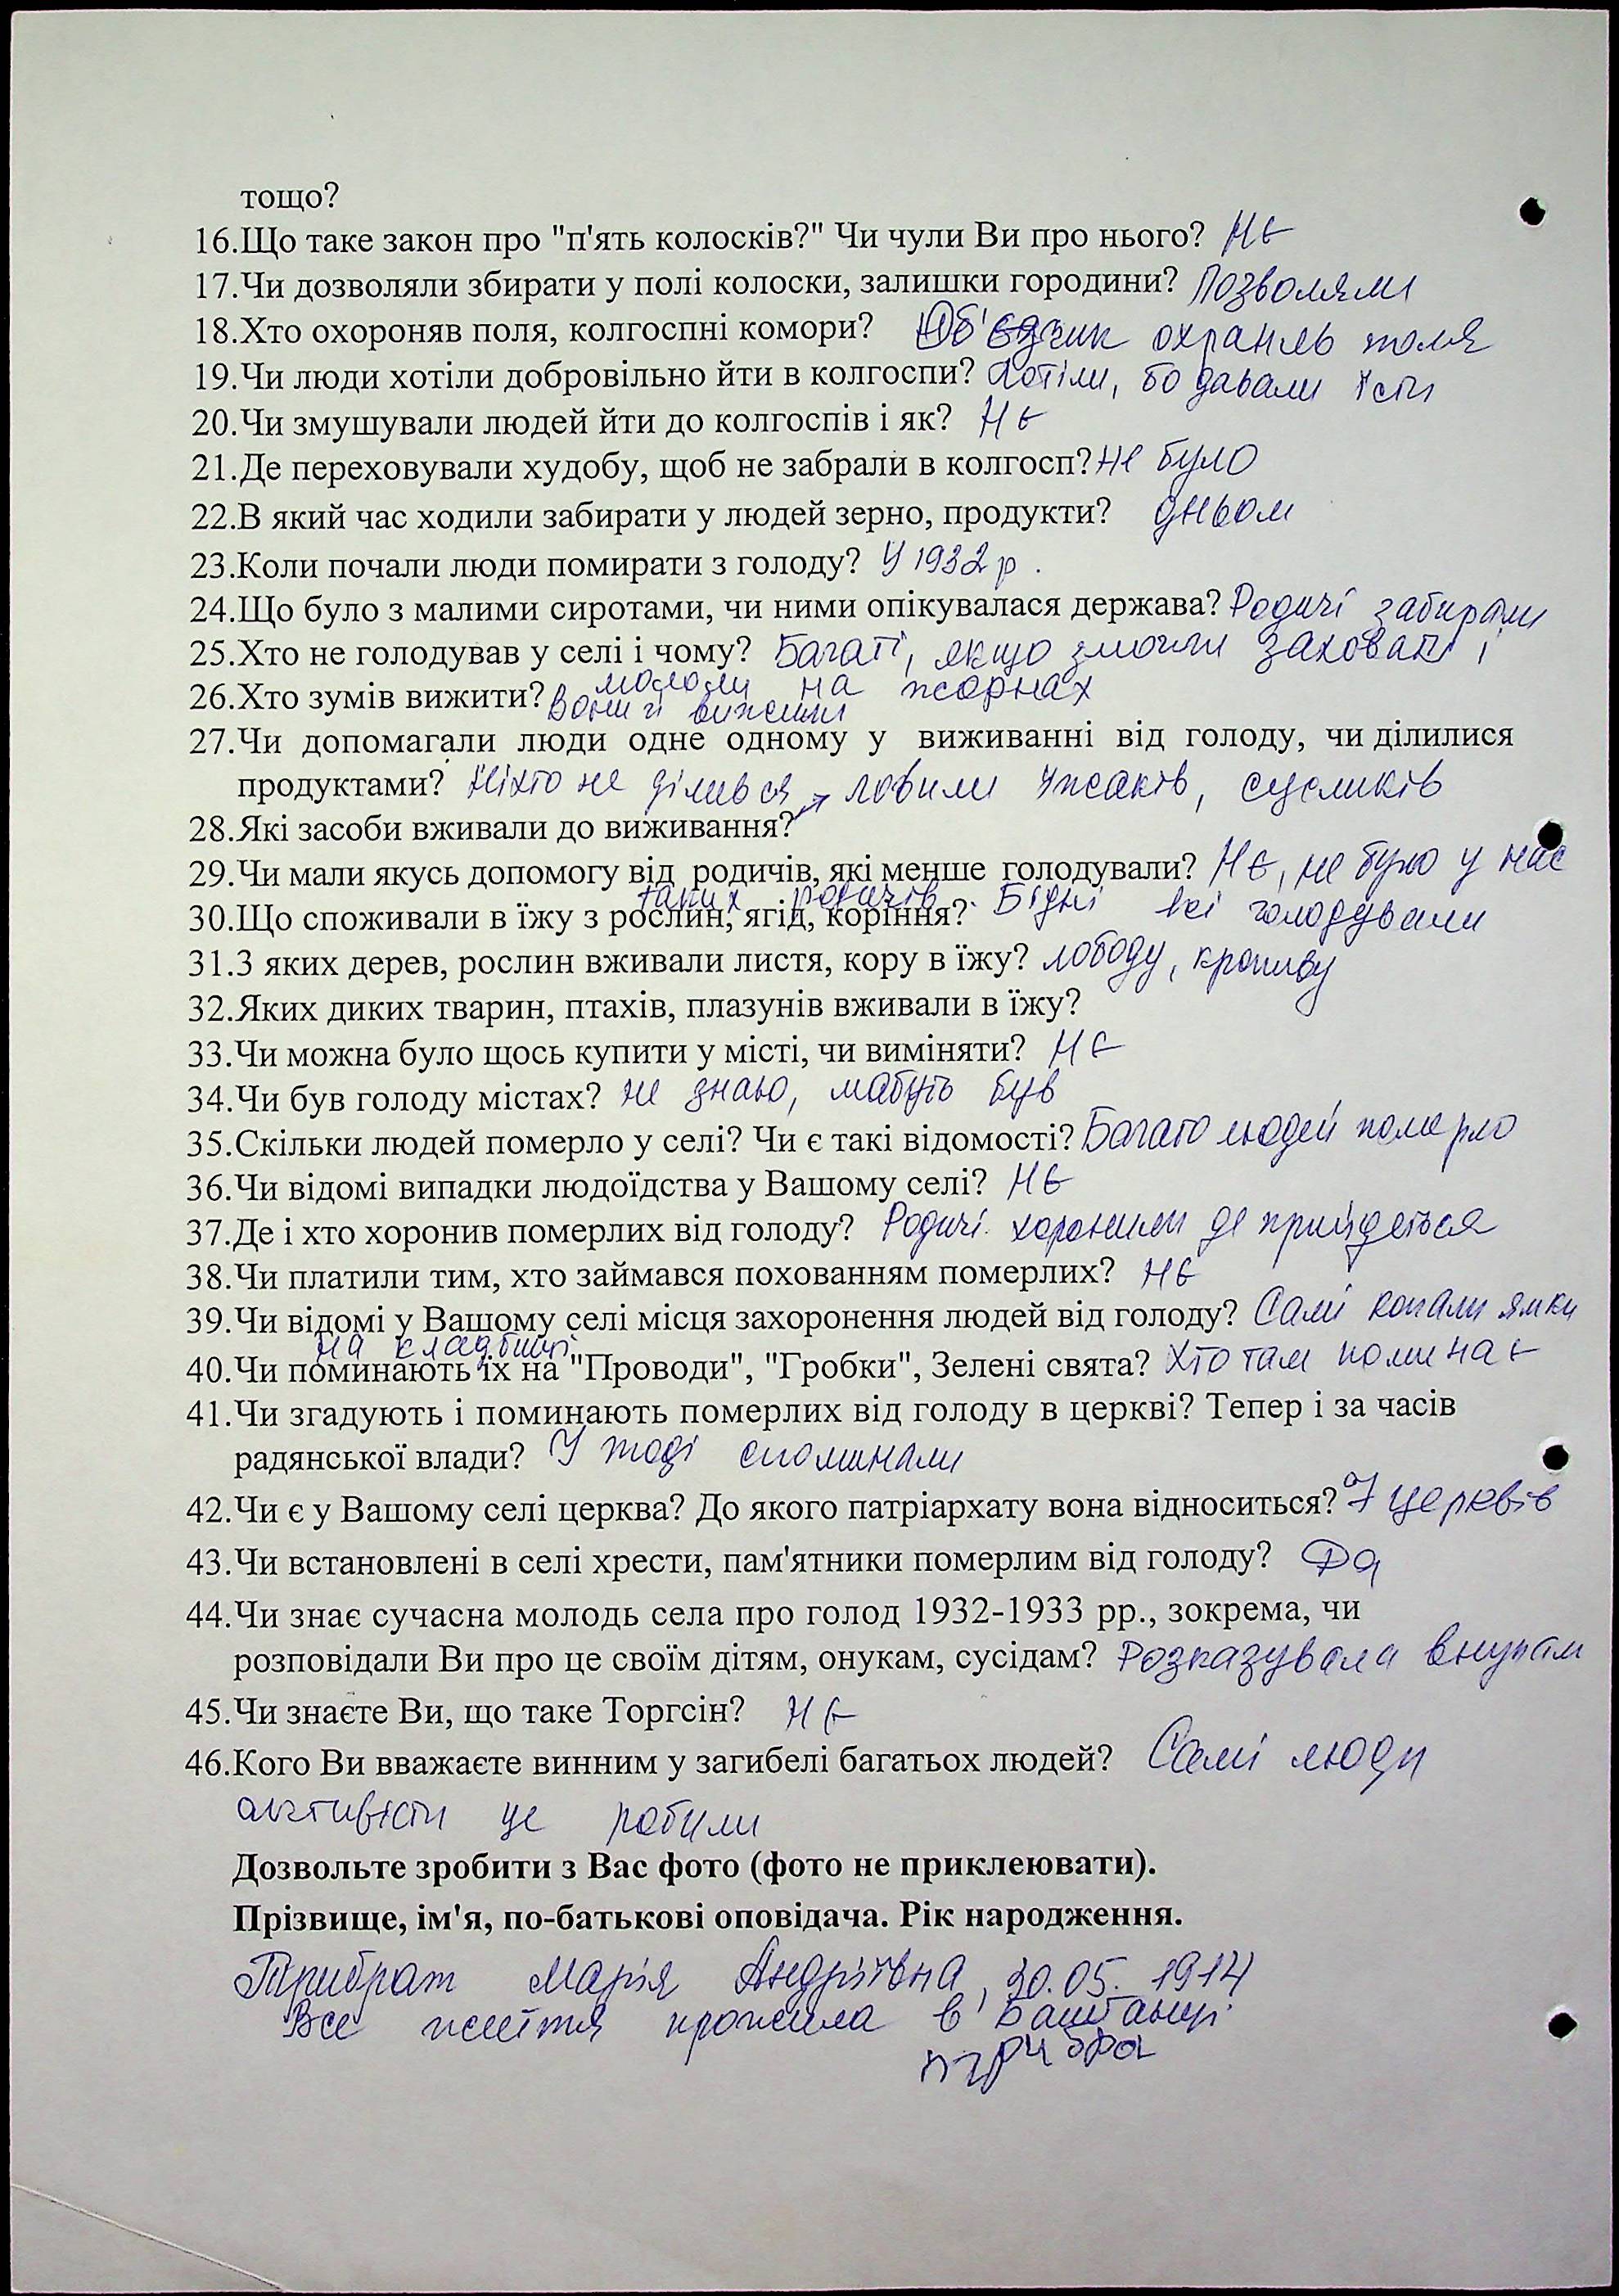 тощо?
16.Що таке закон про "п'ять колосків?" Чи чули Ви про нього? Нє
17.Чи дозволяли збирати у полі колоски, залишки городини? Позволяли
18.Хто охороняв поля, колгоспні комори? Об'єзчик охраняв поля
19.Чи люди хотіли добровільно йти в колгоспи? Хотіли, бо давали їсти
20.Чи змушували людей йти до колгоспів і як? Нє
21.Де переховували худобу, щоб не забрали в колгосп? Не було
22.В який час ходили забирати у людей зерно, продукти? Дньом
23.Коли почали люди помирати з голоду? У 1932 р.
24.Що було з малими сиротами, чи ними опікувалася держава? Родичі забирали
25.Хто не голодував у селі і чому? Багаті, якщо змогли заховати і
мололи на жорнах
26.Хто зумів вижити? Вони й вижили
27.Чи допомагали люди одне одному у виживанні від голоду, чи ділилися
продуктами? Ніхто не ділився, ловили їжаків, сусликів
28.Які засоби вживали до виживання?
29.Чи мали якусь допомогу від родичів, які менше голодували? Нє, не було у нас
таких родичів. Бідні всі голодували
30.Що споживали в їжу з рослин, ягід, коріння?
31.З яких дерев, рослин вживали листя, кору в їжу? лободу, кропиву
32.Яких диких тварин, птахів, плазунів вживали в їжу?
33.Чи можна було щось купити у місті, чи виміняти? Нє
34.Чи був голоду містах? Не знаю, мабуть був
35.Скільки людей померло у селі? Чи є такі відомості? Багато людей померло
36.Чи відомі випадки людоїдства у Вашому селі? Нє
37.Де і хто хоронив померлих від голоду? Родичі хоронили де прийдеться
38.Чи платили тим, хто займався похованням померлих? Нє
39.Чи відомі у Вашому селі місця захоронення людей від голоду? Самі копали ямки
на кладбищі
40.Чи поминають їх на "Проводи", "Гробки", Зелені свята? Хто там поминає
41.Чи згадують і поминають померлих від голоду в церкві? Тепер і за часів
радянської влади? І тоді споминали
42.Чи є у Вашому селі церква? До якого патріархату вона відноситься? 7 церквів
43.Чи встановлені в селі хрести, пам'ятники померлим від голоду? Да
44.Чи знає сучасна молодь села про голод 1932-1933 рр., зокрема, чи
розповідали Ви про це своїм дітям, онукам, сусідам? Розказувала внукам
45.Чи знаєте Ви, що таке Торгсін? Нє
46.Кого Ви вважаєте винним у загибелі багатьох людей? Самі люди
активісти це робили
Дозвольте зробити з Вас фото (фото не приклеювати).
Прізвище, ім'я, по-батькові оповідача. Рік народження.
Прибрат Марія Андріївна, 30.05.1914
Все життя прожила в Баштанці